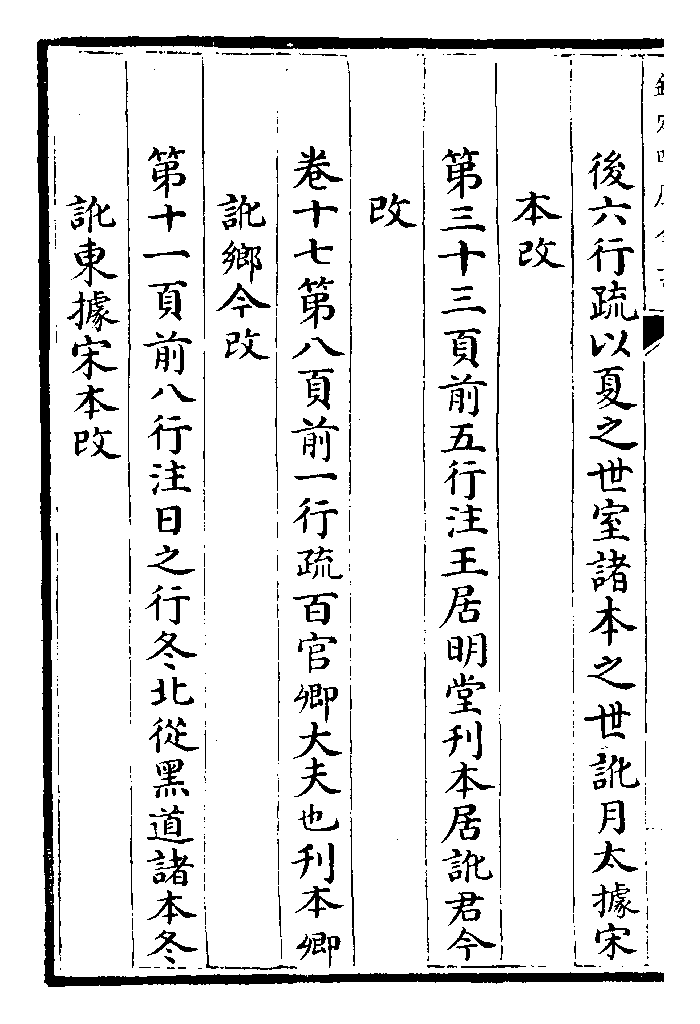 後六行疏以夏之世室諸本之世訛月太據宋
本改
第三十三頁前五行注王居明堂刊本居訛君今
改
卷十七第八頁前一行疏百官卿大夫也刊本卿
訛鄉今改
第十一頁前八行注日之行冬北從黑道諸本冬
訛東據宋本改